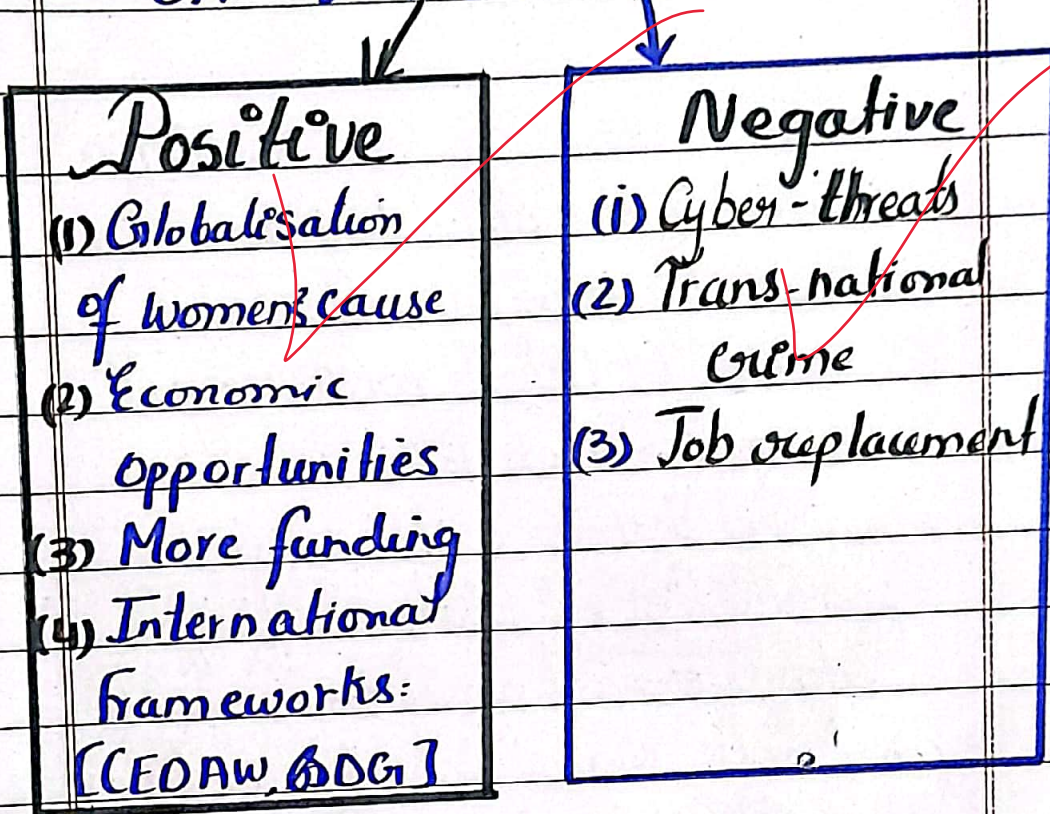 Positive
(1) Globalisation
of women's cause
(2) Economic
opportunities
(3) More funding
(4) International
frameworks:
[CEDAW, SDG]
Negative
(i) Cyber-threats
(2) Trans-national
crime
(3) Job replacement